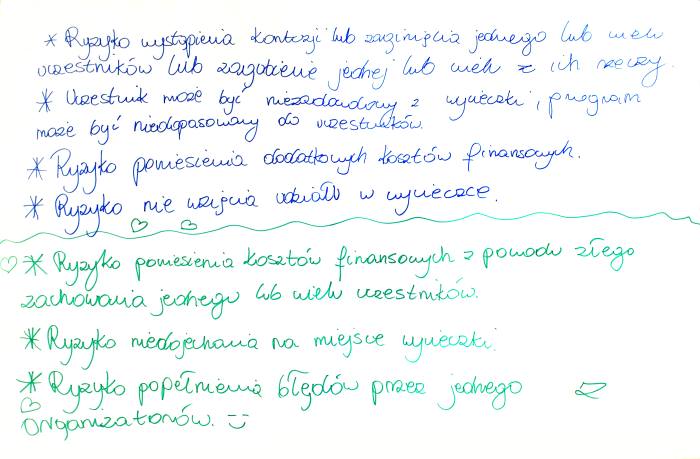 * Ryzyko wystąpienia kontuzji lub zaginięcia jednego lub wielu
uczestników lub zagubienie jednej lub wielu z ich rzeczy.
* Uczestnik może być niezadowolony z wycieczki, program
może być niedopasowany do uczestników.
* Ryzyko poniesienia dodatkowych kosztów finansowych.
* Ryzyko nie wzięcia udziału w wycieczce.
* Ryzyko poniesienia kosztów finansowych z powodu złego
zachowania jednego lub wielu uczestników.
* Ryzyko niedojechania na miejsce wycieczki.
* Ryzyko popełnienia błędów przez jednego
Organizatorów. :)